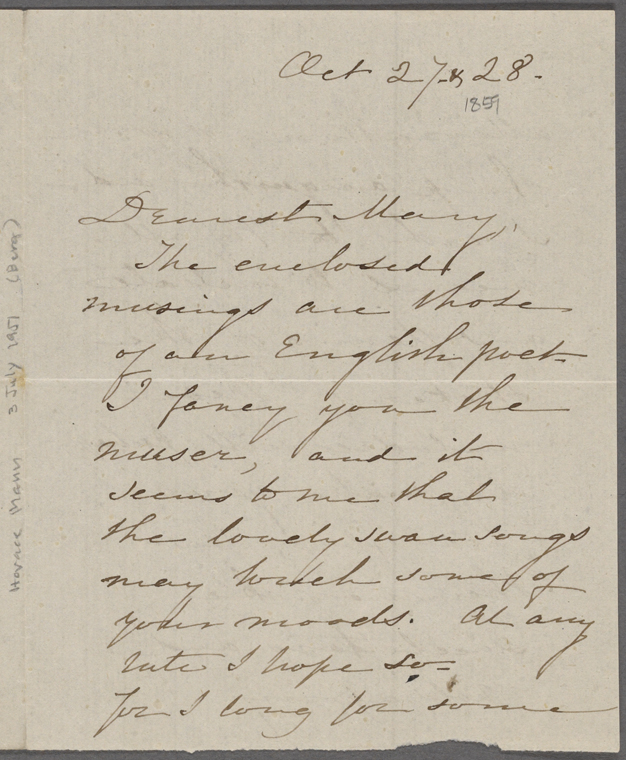 Oct 27 & 28.
1859
Dearest Mary,
The enclosed
musings are those
of an English poet
I fancy you the
muser, and it
seems to me that
the lovely swan songs
may touch some of
your moods. At any
rate I hope so-
for I long for some
Horace Mann 3 July 1951 (Berg)